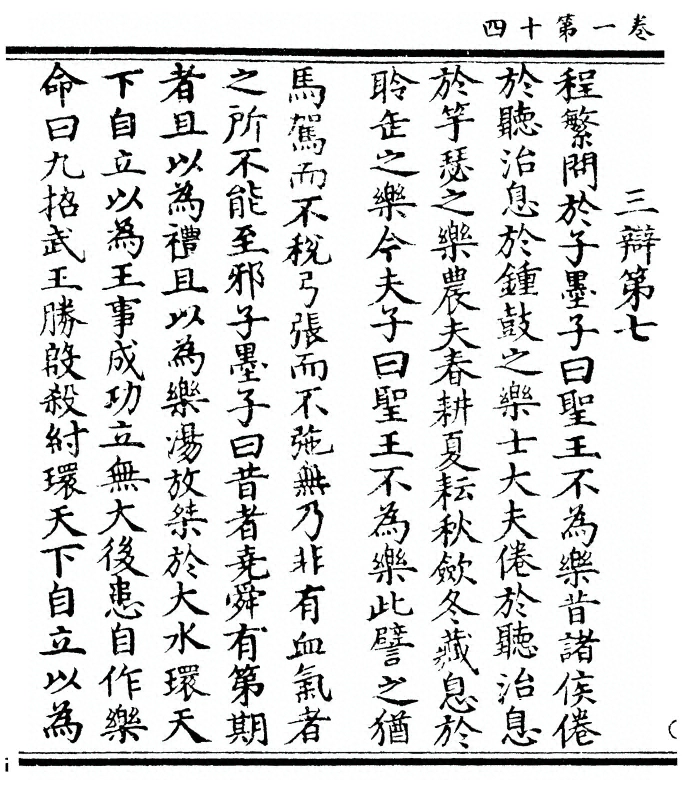 卷一第十四
三辯第七
程繁問於子墨子曰聖王不為樂昔諸侯倦
於聽治息於鍾鼓之樂士大夫倦於聽治息
於竽瑟之樂農夫春耕夏耘秋歛冬藏息於
聆缶之樂今夫子曰聖王不為樂此譬之猶
馬駕而不稅弓張而不弛無乃非有血氣者
之所不能至邪子墨子曰昔者堯舜有第期
者且以為禮且以為樂湯放桀於大水環天
下自立以為王事成功立無大後患自作樂
命曰九招武王勝殷殺紂環天下自立以為